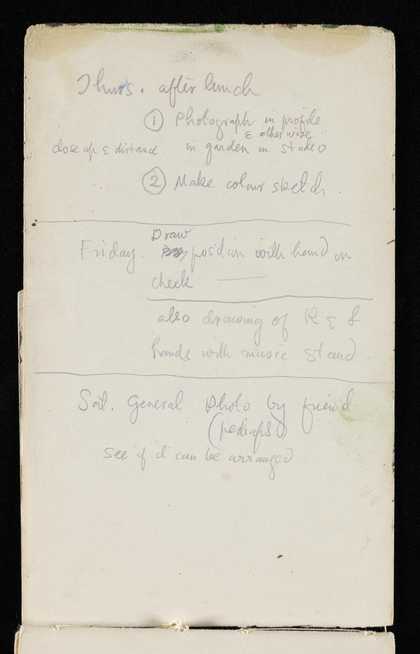 Thurs. after lunch
① Photograph in profile
& other wise
close up & distance in garden in studio
② Make colour sketch.
Draw
Friday. position with hand on
cheek
also drawing of R & L
hands with music stand
Sat. General Photo by friend
(perhaps)
see if it can be arranged